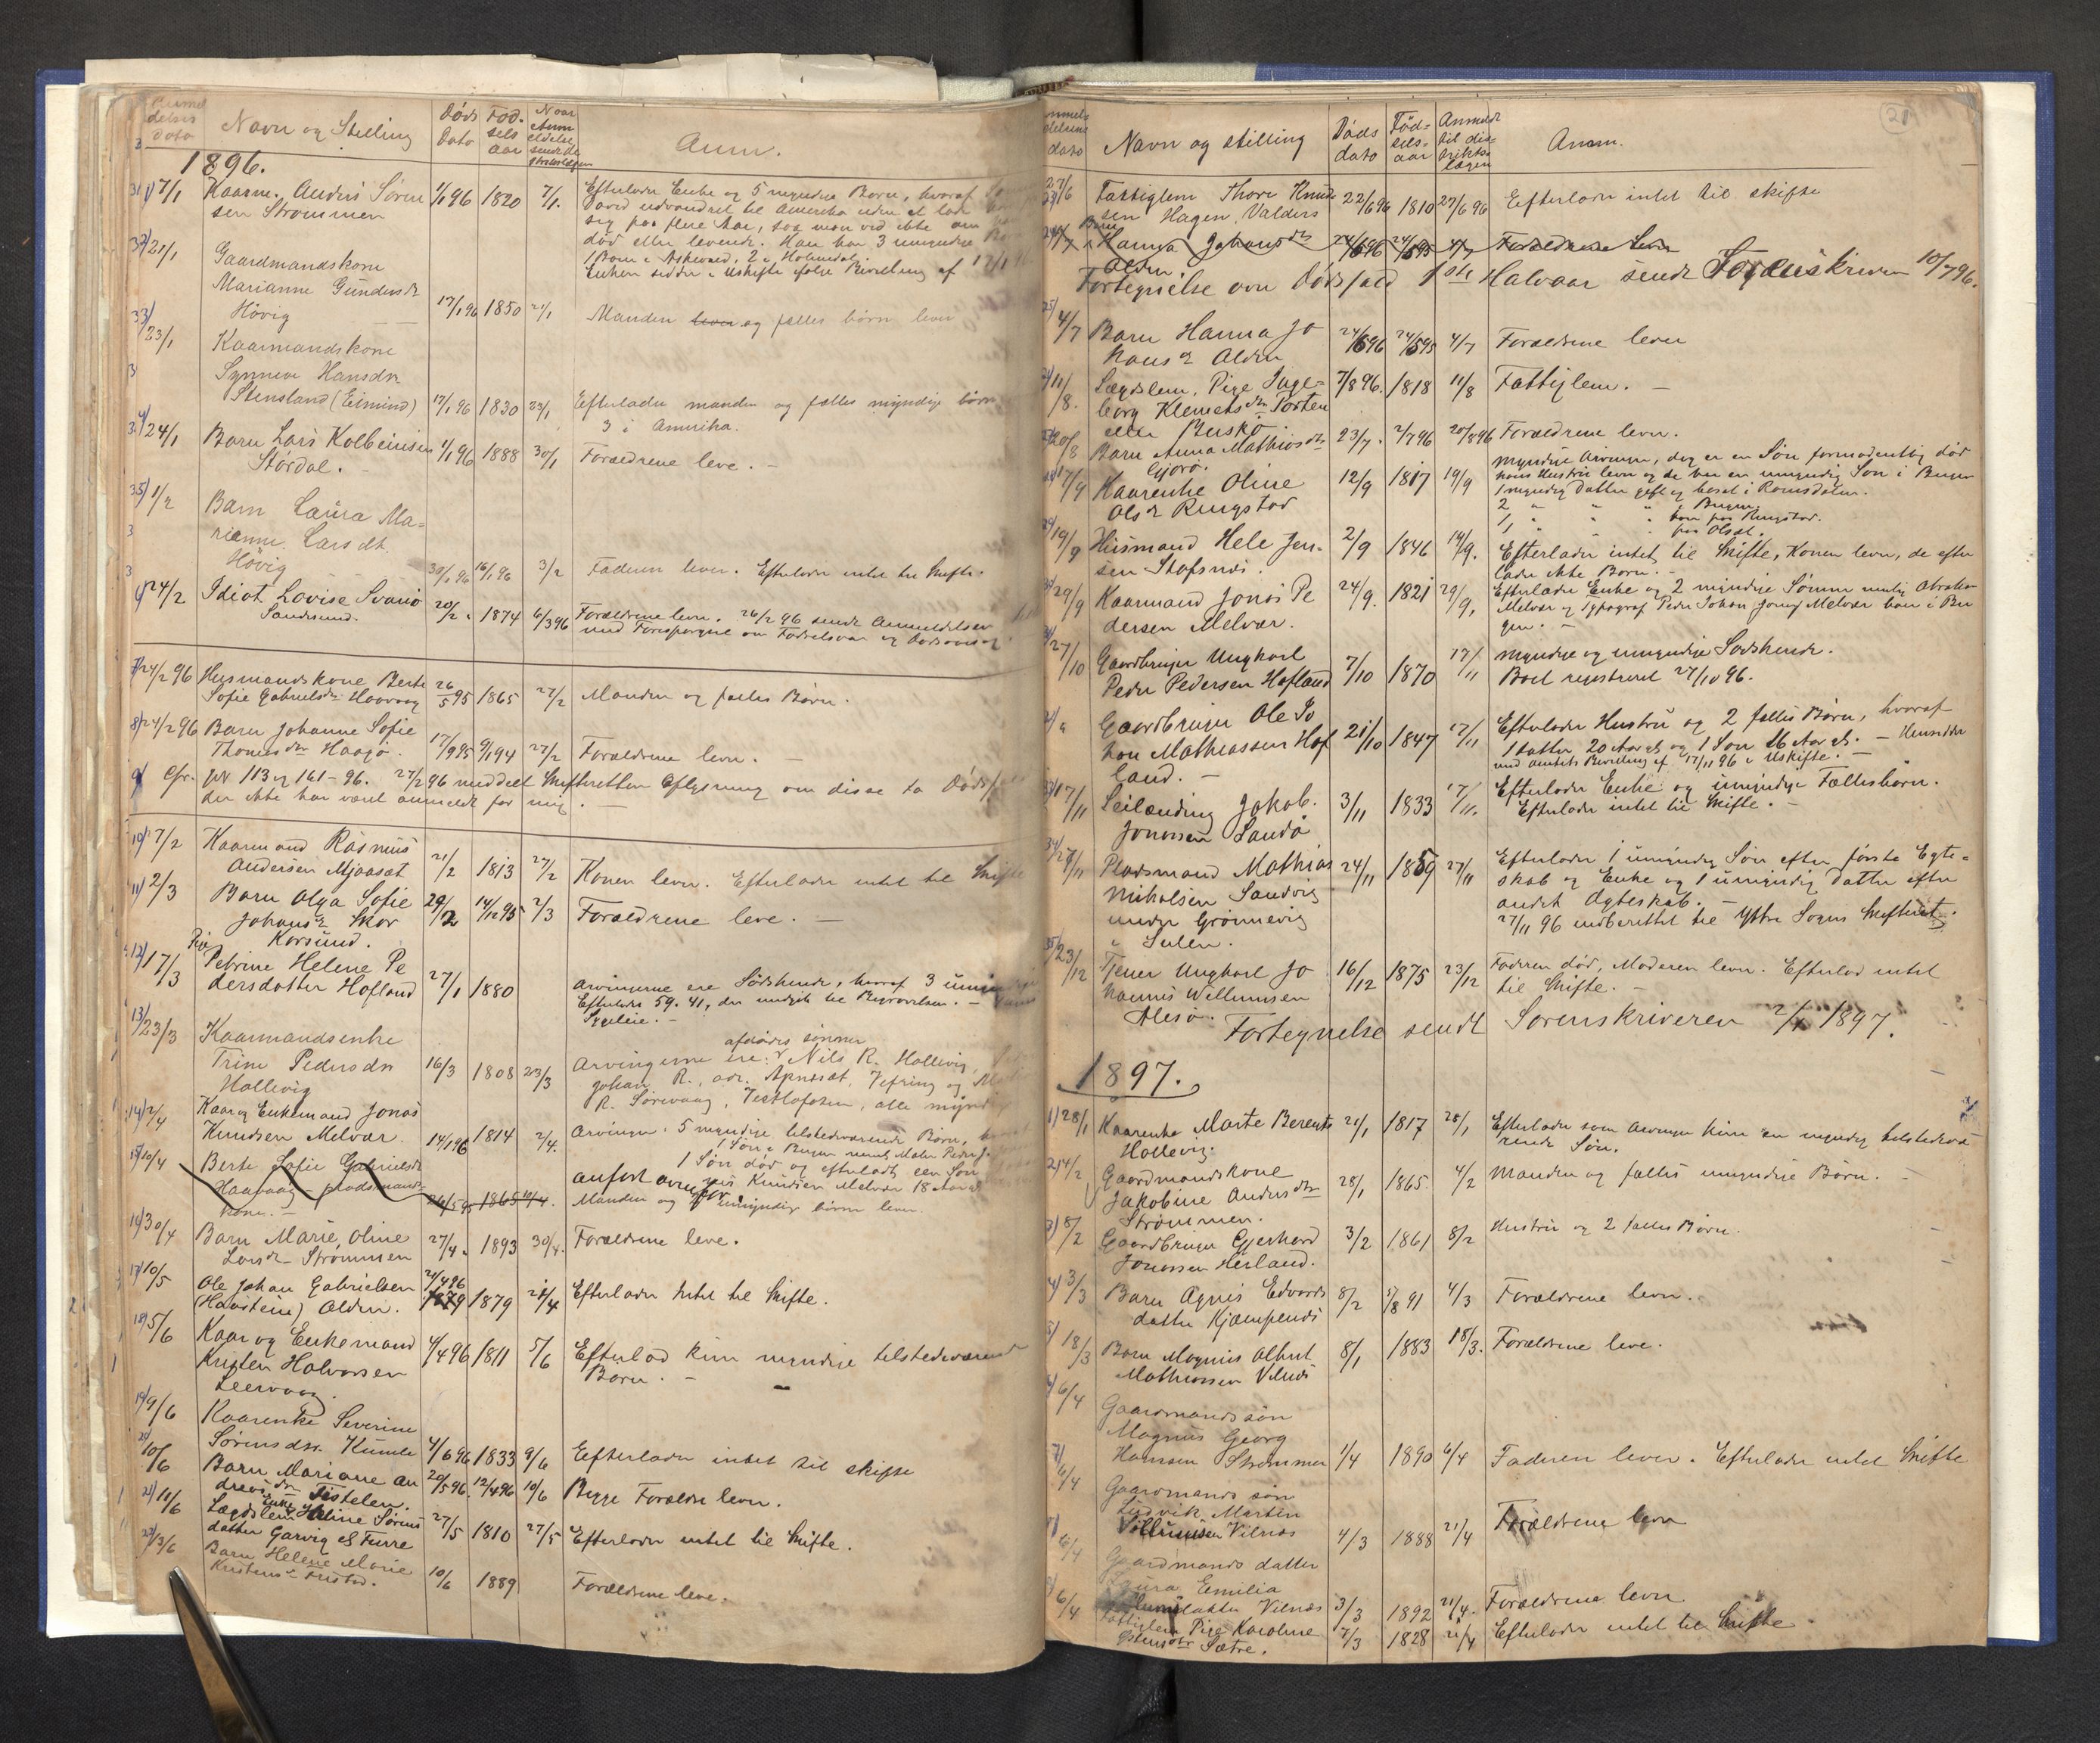 Anmel
delses
dato
Navn og Stilling
Døds
Dato
Fød-
sels
aar
Naar
Anm
eldelse
sendt de
Anm.
1896.
7/1 Kaarm. Anders Søren 1/1 96 1820 7/1. Efterlader Enke og 5 myndige Børn, hvoraf
sen Strømmen
David udvandret til Amerika uden at lade
sig paa flere Aar, saa man ved ikke om
død eller levende. Han har 3 umyndige
1 Barn i Askevold, 2 i Holmedal.
Enken sidder i Uskifte ifølge Bevilling af
21/1 Gaardmandskone
Marianne Gundersdr
Høvig 17/1 96 1850 21/1 Manden lever og fælles børn lever
23/1 Kaarmandskone
Synneve Hansdr
Stensland (Eimind) 17/1 96 1830 23/1 Efterlader manden og fælles myndige børn
3 i Amerika.
24/1 Barn Lars Kolbeinsen 1/1 96 1888 30/1 Forældrene leve. -
Stórdal. -
1/2 Barn Laura Ma-
rianne Larsdt.
Høvig 30/1 96 16/1 96 3/2 Faderen lever. Efterlader intet til Skifte.
24/2 Idiot Lovise Svanø 20/2. 1874 6/3 96 Forældrene lever. 26/2 96 sendt Anmeldelsen
Sandsund. med Forespørgsel om Fødselsaar og Dødsaarsag
24/2 96 Husmandskone Berte 26/5 95 1865 27/2 Manden og fælles Børn.
Sofie Gabrielsdr Haavaag
24/2 96 Barn Johanne Sofie
Thomasdr Haagø. 17/9 95 9/1 94 27/2 Forældrene lever. -
Cfr. JN 113 og 161-96. 27/2 96 meddelt Skifteretten Oplysning om disse to Dødsf
der ikke har været anmeldt for mig. -
17/2 Kaarmand Rasmus
Andersen Mjaaset 21/2 1813 27/2 Konen lever. Efterlader intet til Skifte
2/3 Barn Olga Sofie 29/2 14/12 95 2/3 Forældrene leve. -
Johansdr Skor
Korssund.
17/3 Pige
Petrine Helene Pe
dersdatter Hofland 27/1 1880 Arvingerne ere Sødskende, hvoraf 3 umyndige
Efterlader 59.41, der medgik til Begravelsen. -
Sygeleie. -
23/3 Kaarmandsenke
Trine Pedersdr 16/3 1808 23/3 Arvingerne ere: afdødes sønner Nils R. Hallevig,
Hallevig Johan R., adr. Apneset, Vefring og
R. Sørevaag, Vestlofoten, alle myndige
2/4 Kaar og Enkemand Jonas
Knudsen Melvær. 14/1 96 1814 2/4. Arvinger: 5 myndige tilstedeværende Børn,
1 Søn i Bergen
1 Søn død og efterladt een Søn
Knudsen Melvær 18 Aar
10/4 Berte Sofie Gabrielsdr anført ovenfor.
Haavaag - pladsmands
kone. - 26/5 95 1865 10/4. Manden og umyndige børn lever.
30/4 Barn Marie Oline 27/4. 1893 30/4. Forældrene leve.
Larsdr Strømmen
10/5 Ole Johan Gabrielsen 21/4 96
(Haastene) Alden. 1879 1879 21/4 Efterlader Intet til Skifte.
5/6 Kaar og Enkemand 4/4 96 1811 5/6 Efterlod kun myndige tilstedeværend
Kristen Halvorsen Børn. -
Leervaag.
9/6 Kaarenke Severine
Sørensdr. Kumle 4/6 96 1833 9/6 Eefterlader intet til skifte
10/6 Barn Mariane An 20/5 96. 12/4 96 10/6 Begge Forældre lever.
dreasdr Tistelen.
11/6 Lægdslem Enke Oline Sørens 27/5 1810 27/5 Efterlader intet til Skifte.
datter Garvig & Furre
13/6 Barn Helene Marie 10/6 1889 Forældrene leve.
Kristensdr
21
dato
Navn og stilling
Døds
dato
Fød-
sels-
aar
Anmeldt
til dis-
trikts-
lægen
Anm.
27/6 Fattiglem Thore Knud 22/6 96 1810 27/6 96 Efterlader intet til skifte
sen Hagen, Valders
4/7 Barn
Hanna Johansdr 24/6 96 24/5 95 4/7 Forældrene lever
Alden
Fortegnelse over Dødsfald 1ste Halvaar sendt Sorenskriveren 10/7 96.
4/7 Barn Hanna Jo 24/6 96 24/5 95 4/7 Forældrene lever
hansdr Alden
11/8. Lægdslem, Pige Inge- 7/8 96. 1818 11/8 Fattiglem. -
borg Klemetsdr Porten
eller Buskø
20/8 Barn Anna Mathiasdtr 23/7. 2/7 96 20/8 96 Forældrene lever.
Gjørø.
17/9 Kaarenke Oline 12/9 1817 19/9 Myndige Arvinger, dog er en Søn formodentlig død
Olsdr Ringstad hans Hustru lever og de har en umyndig Søn i Bergen
1 myndig Datter gift og bosat i Romsdalen.
2 " " " " Bergen
1 " " " hos paa Ringstad.
1 " " " paa Olset.
19/9 Husmand Hele Jen- 2/9 1846 19/9. Efterlader intet til Skifte, Konen lever, de efter
sen Stafsnes. lader ikke Børn. -
29/9 Kaarmand Jonas Pe 24/9. 1821 29/9. Efterlader Enke og 2 myndige Sønner nemlig Abraham
dersen Melvær. Melvær og Typograf Peder Johan Jonas Melvær hver i Ber
gen. -
27/10 Gaardbruger Ungkarl 7/10 1870 17/11 Myndige og umyndige Sødskende.
Peder Pedersen Hofland Boet registreret 27/10 96.
Gaardbruger Ole Jo 21/10 1847 17/11 Efterlader Hustru og 2 fælles Børn, hvoraf
han Mathiassen Hof 1 datter 20 Aar gl. og 1 Søn 16 Aar gl. - Hensidder
land. - med Amtets Bevilling af 17/11 96 i Uskifte. -
17/11 Leilænding Jakob. 3/11 1833 17/11. Efterlader Enke og umyndige Fællesbørn.
Jonassen Sandø Efterlader intet til Skifte. -
27/11 Pladsmand Mathias 24/11 1859 27/11 Efterlader 1 umyndig Søn efter første Egte-
Nikolsen Sandvig skab og Enke og 1 umyndig Datter efter
under Grønnevig andet Ægteskab. -
i Sulen. 27/11 96 indberettet til Yttre Sogns Skifteret.
23/12 Tjener Ungkarl Jo 16/12 1875 23/12 Faderen død, Moderen lever. Efterlod intet
hannes Willumsen til Skifte. -
Alesø.
Fortegnelse sendt Sorenskriveren 2/1 1897.
1897.
1) 28/1 Kaarenke Marte Berents 21/1 1817 28/1 Efterlader som Arvinger kun en myndig tilstedevæ
Hollevig. rende Søn.
2) 4/2 Gaardmandskone 28/1 1865. 4/2 Manden og fælles umyndige Børn. -
Jakobine Andersdtr
Strømmen.
3) 8/2 Gaardbruger Gjerhard 3/2 1861 8/2 Hustru og 2 fælles Børn.
Jonassen Herland.
4) 3/3 Barn Agnes Edvards 8/2 5/8 91 4/3 Forældrene lever.
datter Kjempenes
18/3 Barn Magnus Albert 8/1 1883 18/3. Forældrene leve.
Mathiassen Vilnes
6/4 Gaardmandssøn
Magnus Georg
Hansen Strømmen 1/4 1890 6/4 Faderen lever. Efterlader intet Skifte
6/4 Gaardmands søn
Ludvik Martin
Villumsen Vilnæs 4/3 1888 21/4 Forældrene lever
6/4 Gaardmands datter
Laura Emilia
Vilnæs 3/3 1892 21/4. Forældrene lever
6/4 Fattiglem Pige Karoline 7/3 1828 21/4 Efterlader intet til Skifte
Sætre.